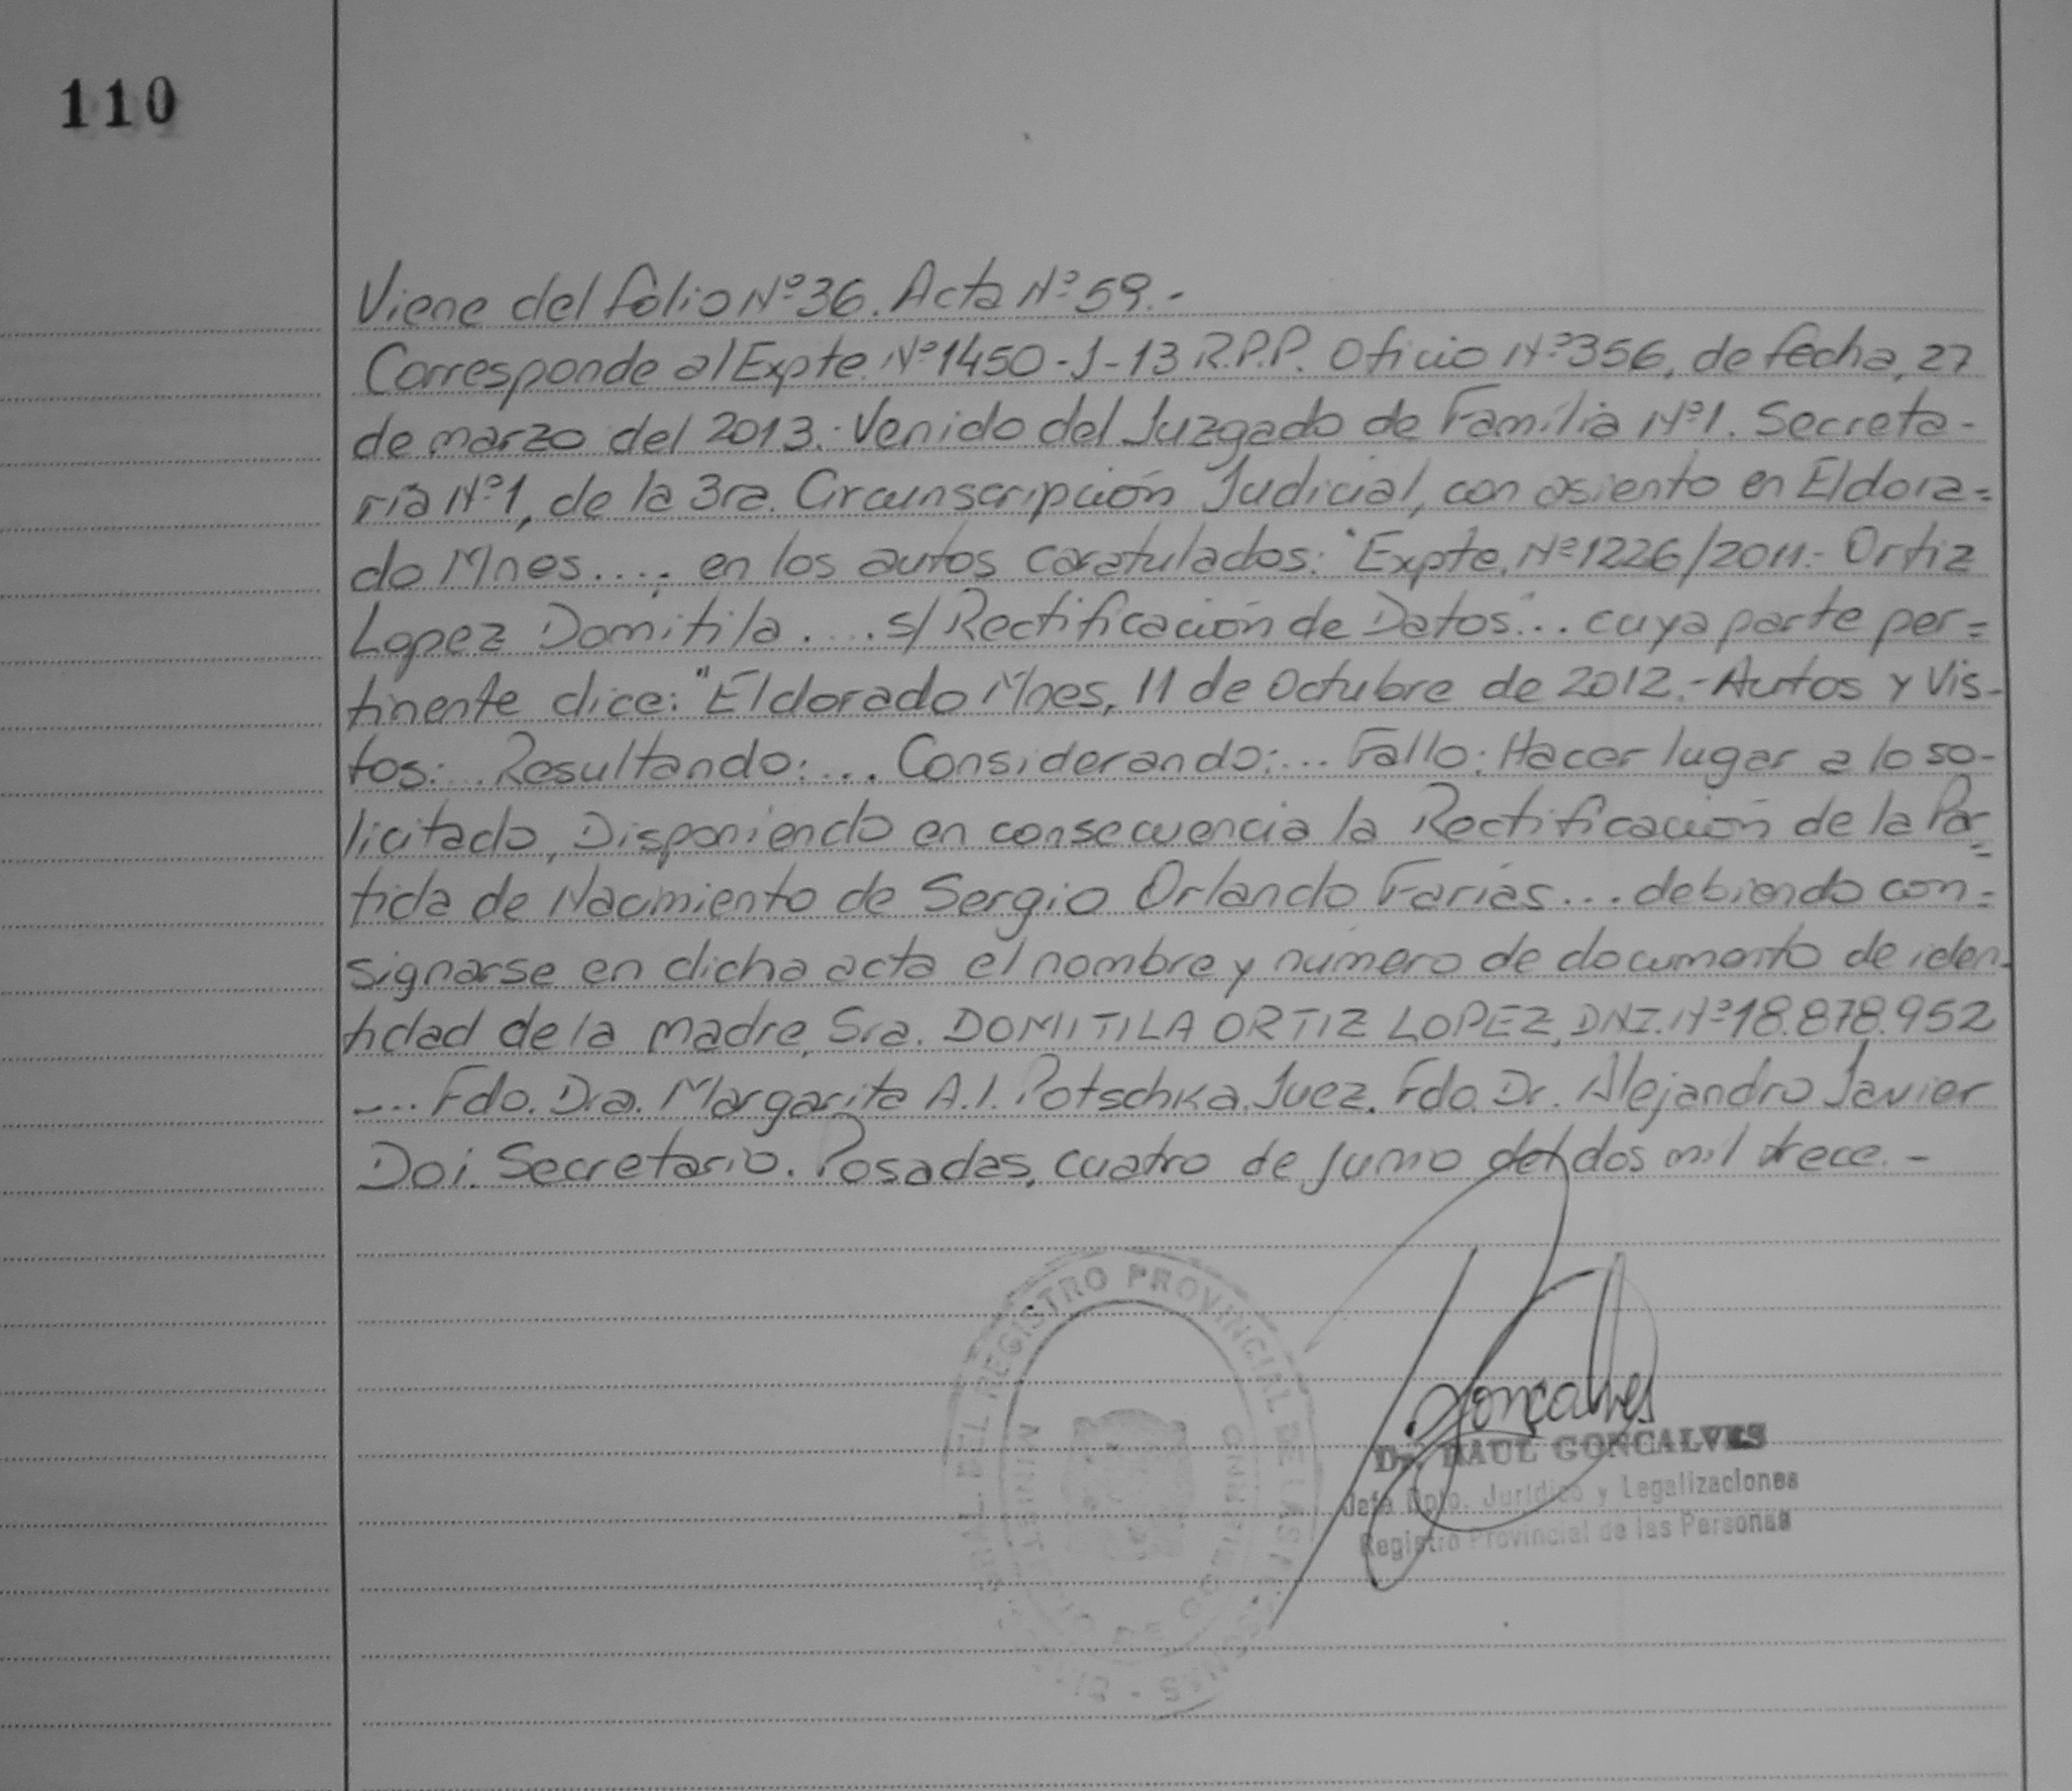 110
Viene del folio Nº36. Acta Nº59.-
Corresponde al Expte. Nº1450-J-13 R.P.P. Oficio Nº356, de fecha, 27
de marzo del 2013. Venido del Juzgado de Familia Nº1. Secreta-
ría Nº1, de la 3ra. Circunscripción Judicial, con asiento en Eldora=
do Mnes...., en los autos caratulados: "Expte. Nº1226/2011.- Ortiz
Lopez Domitila.....s/Rectificación de Datos"... cuya parte per=
tinente dice: "Eldorado Mnes, 11 de Octubre de 2012.- Autos y Vis-
tos:...Resultando:... Considerando:... Fallo: Hacer lugar a lo so-
licitado, Disponiendo en consecuencia la Rectificación de la Par=
tida de Nacimiento de Sergio Orlando Farias... debiendo con=
signarse en dicha acta el nombre y número de documento de iden-
tidad de la madre, Sra. DOMITILA ORTIZ LOPEZ, DNI. Nº18.878.952
.... Fdo. Dra. Margarita A.I. Potschka. Juez. Fdo. Dr. Alejandro Javier
Doi. Secretario. Posadas, cuatro de junio del dos mil trece.-
GRAL. DEL REGISTRO PROVINCIAL DE LAS PERSONAS
MINISTERIO DE GOBIERNO
Gonçalves
Dr. RAUL GONCALVES
Jefe Dpto. Jurídico y Legalizaciones
Registro Provincial de las Personas